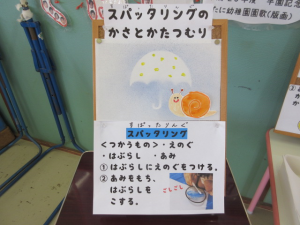 スパッタリングの
かさとかたつむり
すぱったりんぐ
スパッタリング
<つかうもの>・えのぐ
・はぶらし ・あみ
①はぶらしにえのぐをつける。
②あみをもち、
はぶらしを
こする。
ごしごし
たに幼稚園園歌(版画)